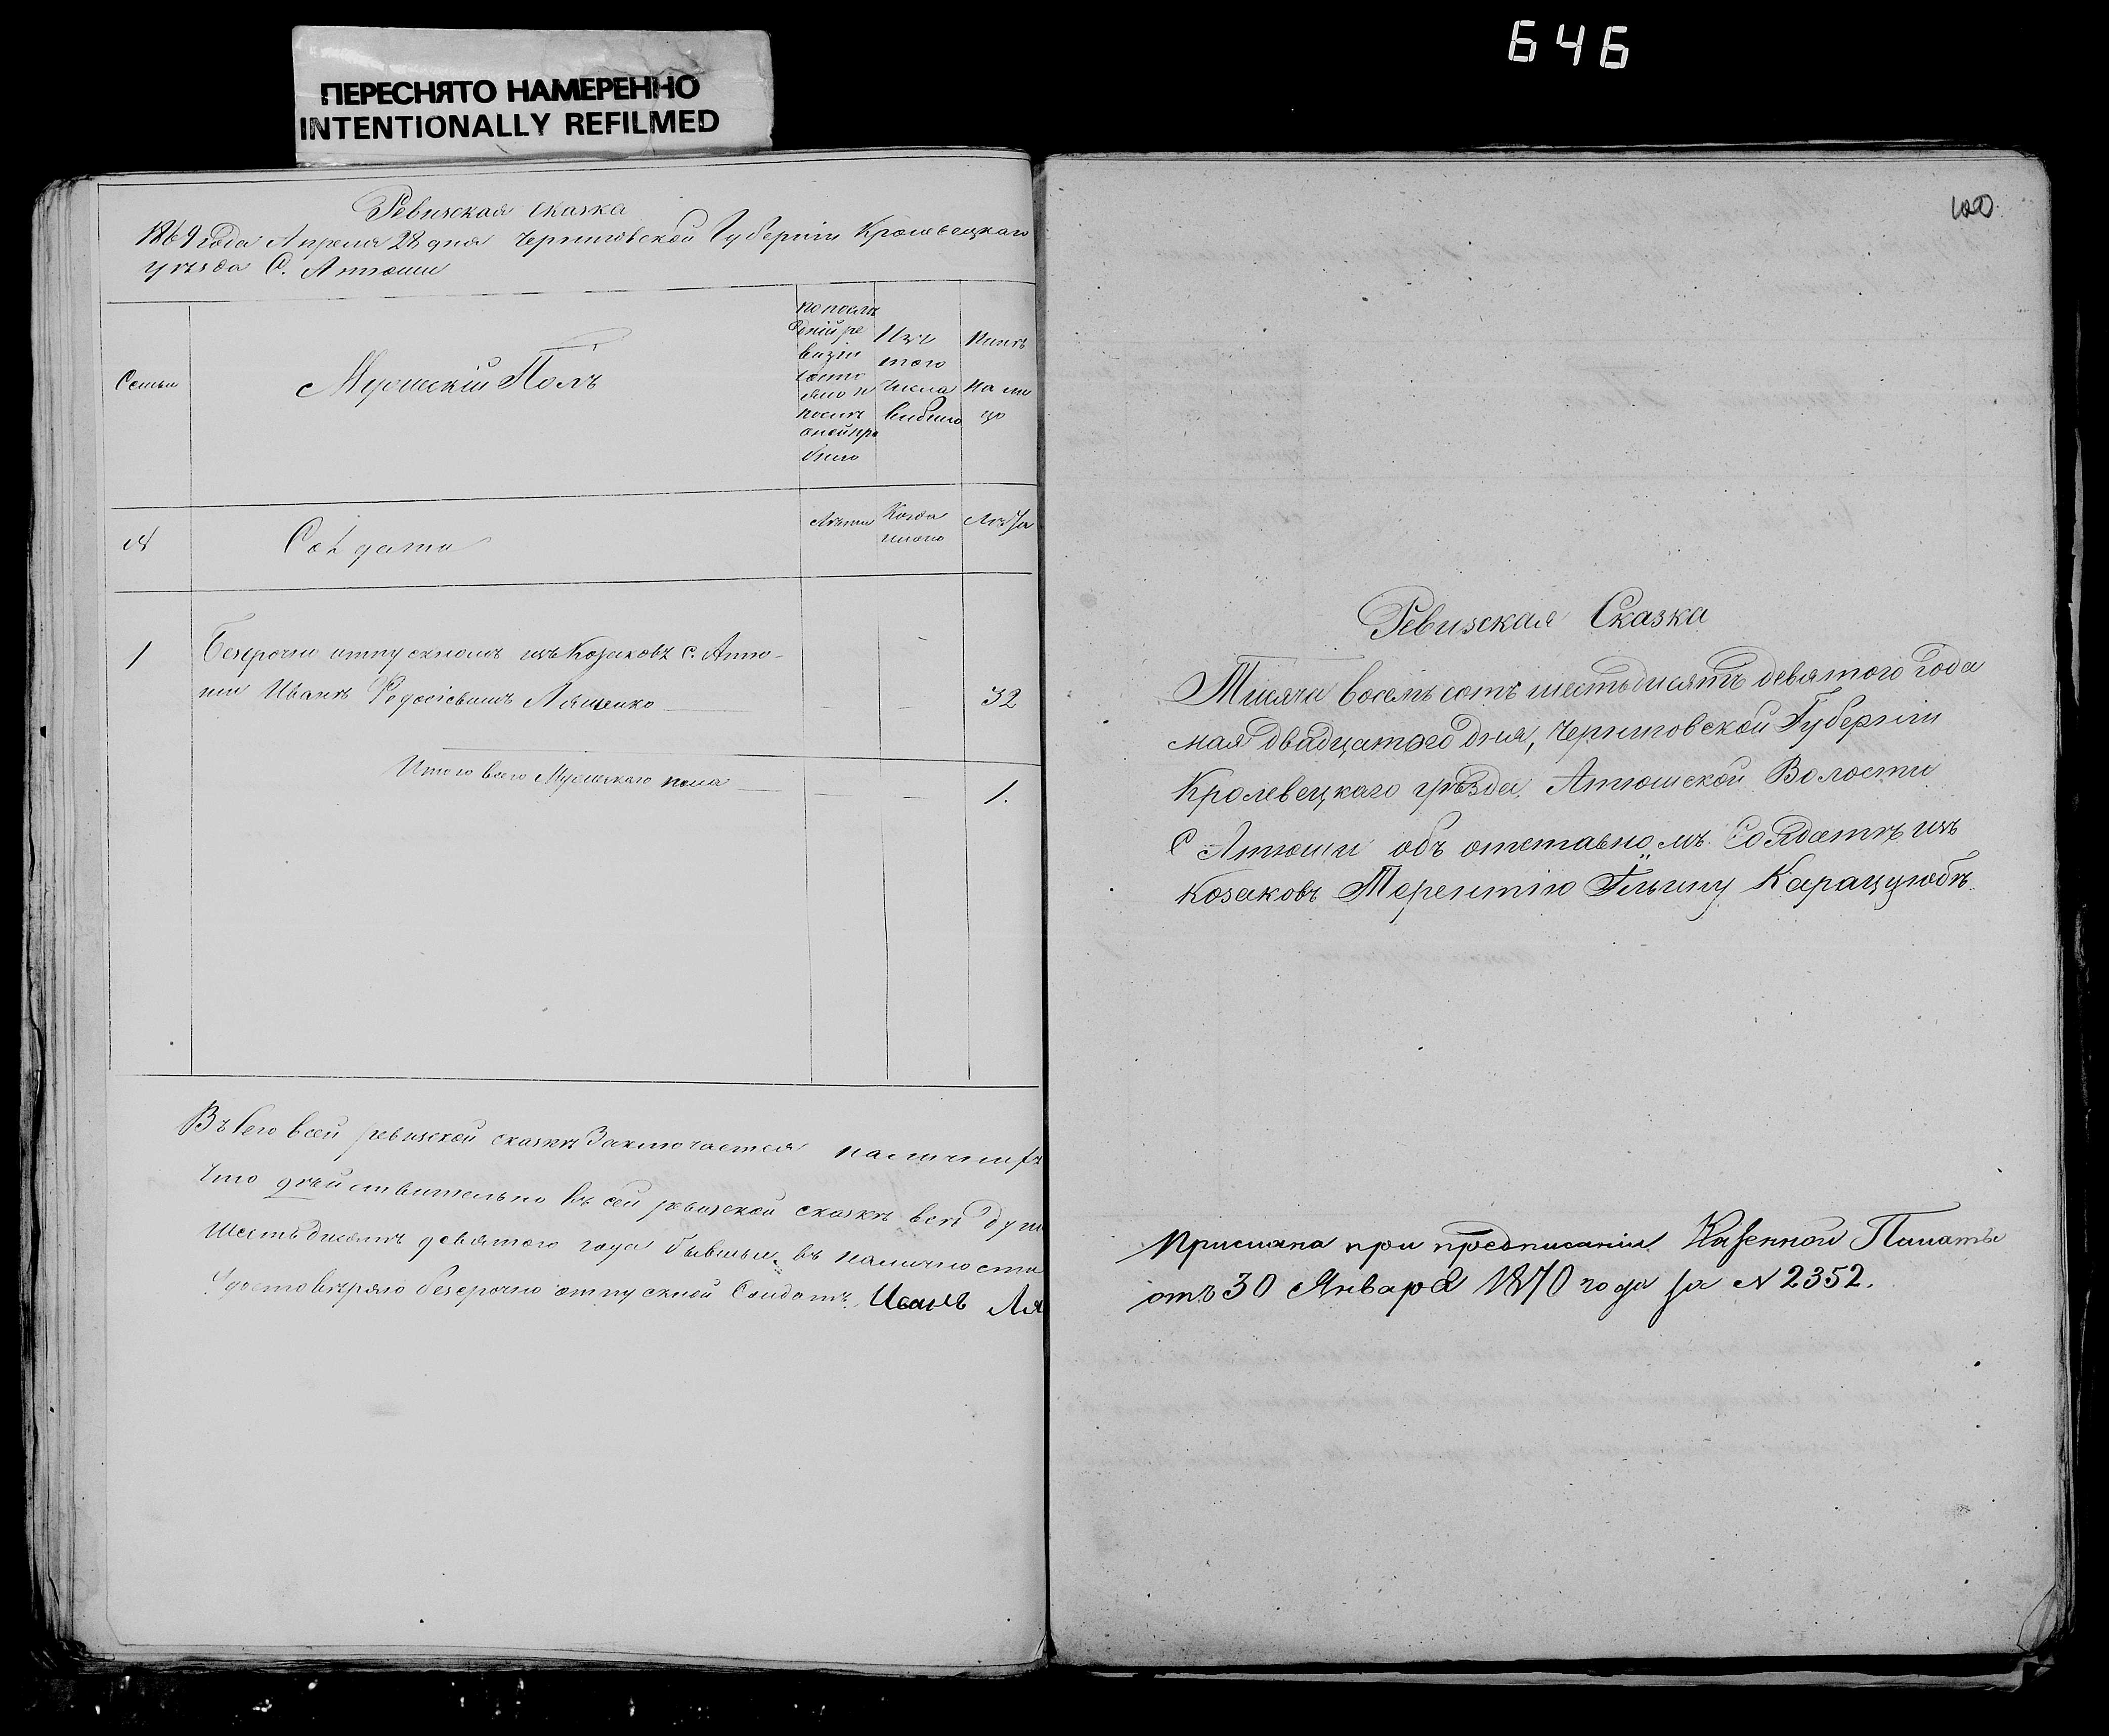 646
ПЕРЕСНЯТО НАМЕРЕННО
INTENTIONALLY REFILMED
Ревизская сказка
1869 года Апреля 28 дня Черниговской Губерніи Кролевецкаго
уѣзда С. Атюши
Семьи
Мужескій Полъ
По послѣ
дній ре
визіи
состо
яло и
послѣ
оной при
было
Изъ
того
числа
выбыло
Нынѣ
на ли
цо
№
Солдаты
Лѣта
Когда
имено
Лѣта
1
Безсрочно отпускномъ изъ Козаковъ с. Атю-
ши Иванъ Федосіевичъ Лященко
32
Итого всего Мужескаго пола
1.
всей ревизской сказкѣ Заключается наличных
Что дѣйствительно въ сей ревизской сказкѣ всѣ души
Шестьдисятъ девятого года бывшы въ наличности
Удостовѣряю безсрочно отпускной Солдатъ Иванъ Ля
100
Ревизская Сказка
Тисяча восемь сотъ шестьдисятъ девятого года
мая двадцатого дня, Черниговской Губерніи
Кролевецкаго уѣзда Атюшской Волости
С Атюши объ отставномъ Солдатѣ изъ
Козаковъ Терентію Ильину Карацюбѣ
Прислана при предписаніи Казенной Палаты
отъ 30 Января 1870 года за N 2352.